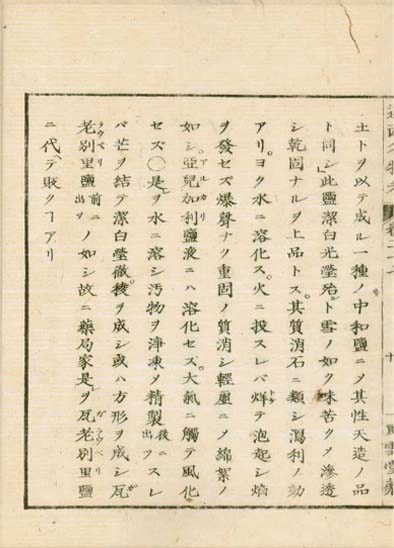 土トヲ以テ成ル一種ノ中和鹽ニメ其性天造ノ品
ト同シ此鹽潔白光瑩殆ント雪ノ如ク味苦ク滲透
シ乾固ナルヲ上品トス其質消石ニ類シ瀉利ノ効
アリ。ヨク水ニ溶化ス。火ニ投スレバ烊テ泡起シ焰
ヲ發セズ爆聲ナク重固ノ質消シ輕虚ニメ綿絮ノ
如シ。亞兒加利鹽液ニハ溶化セス。大氣ニ觸テ風化
セズ〇是ヲ水ニ溶シ汚物ヲ浄凍メ精製後ニ出ツスレ
バ芒ヲ結テ潔白瑩徹。稜ヲ成シ或ハ方形ヲ成シ瓦
老別里鹽前ニ出ツノ如シ故ニ藥局家是ヲ瓦老別里鹽
ニ代ヘテ販クヿアリ